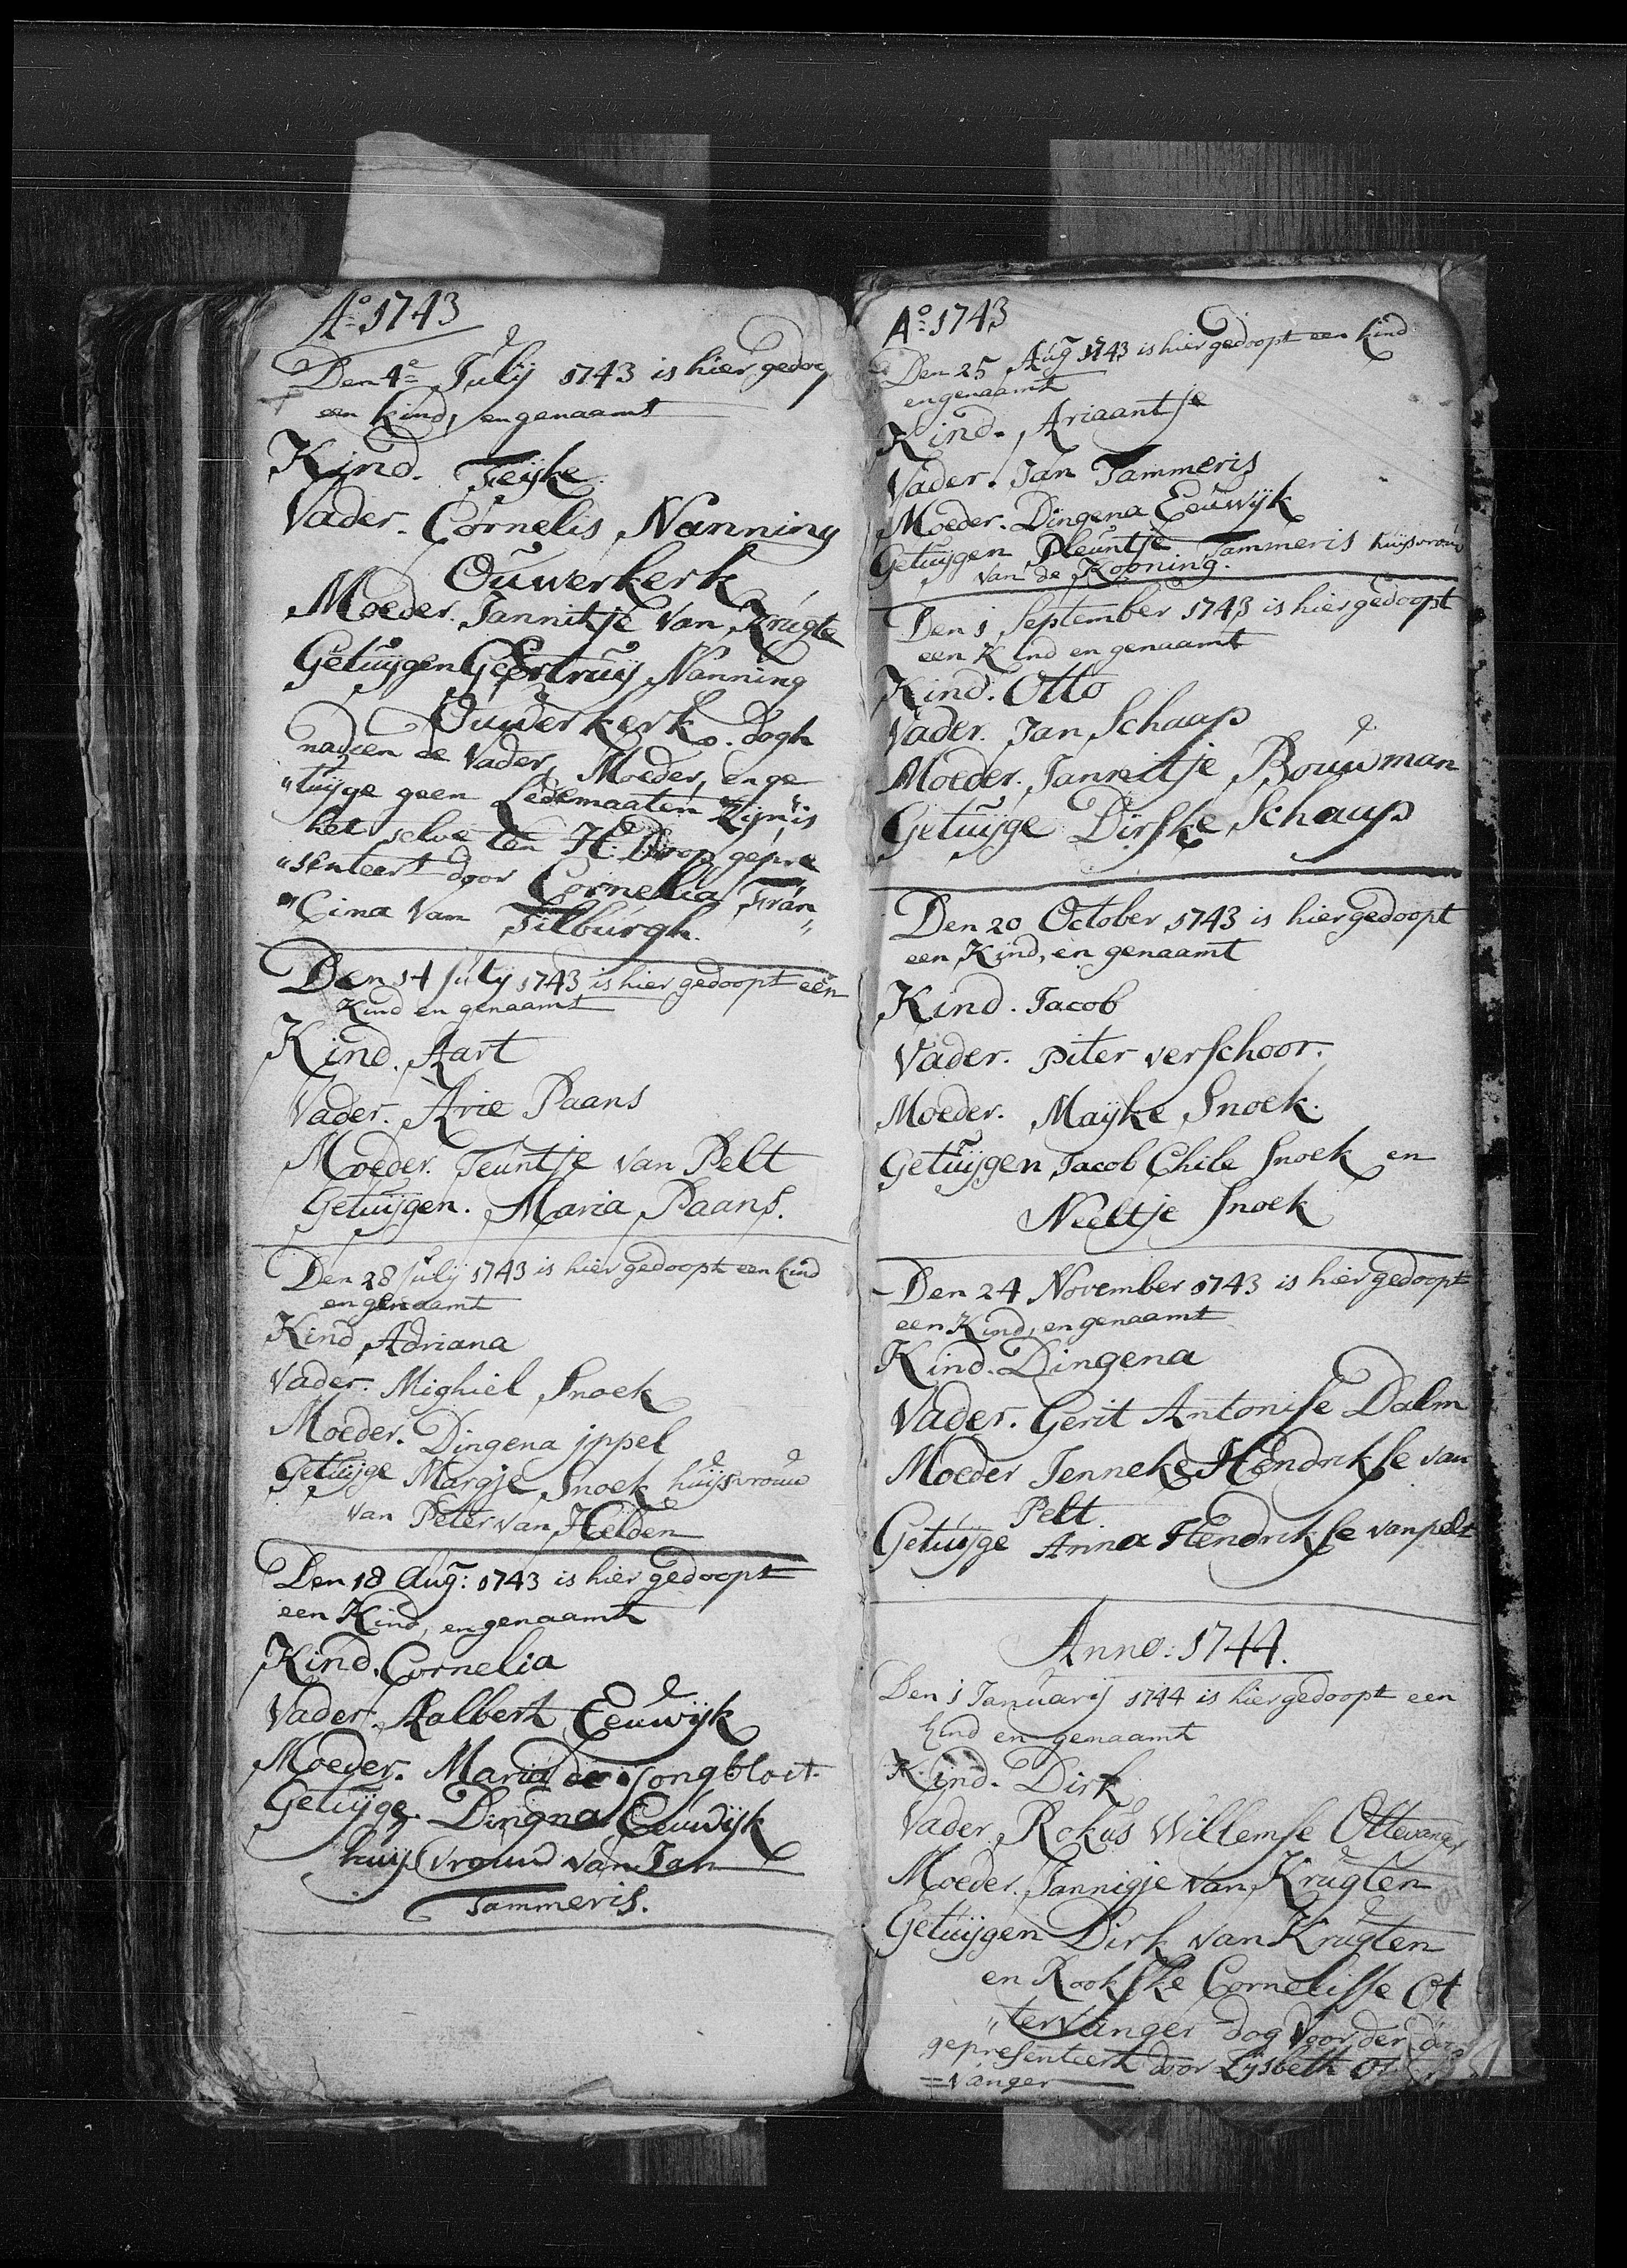 Ao 1743
Den 4e July 1743 is hier gedoop
een kind, en genaamt
Kind. Feijke
Vader. Cornelis Nanning
Ouwerkerk
Moeder. Jannitje van Krugte
Getuijgen Geertruij Nanning
Ouwerkerk. dogh
nadien de Vader, Moeder, en ge
"tuijge geen Ledemaaten zijn is
het selve ten H: Doop gepre
"senteert door Cornelia Fran
"Cina van Tilburgh.
Den 14 July 1743 is hier gedoopt een
Kind en genaamt
Kind. Aart
Vader. Arie Paans
Moeder. Teuntje van Pelt
Getuijgen. Maria Paans.
Den 28 July 1743 is hier gedoopt een kind
en genaamt
Kind Adriana
Vader. Mighiel Snoek
Moeder. Dingena jppel
Getuijge Margje Snoek huijsvrouw
van Peter van Helden
Den 18 Aug: 1743 is hier gedoopt
een Kind, en genaamt
Kind. Cornelia
Vader. Aalbert Eeuwijk
Moeder. Maria de Jongbloet.
Getuijge. Dingna Eeuwijk
huijsvrouw van Jan
Tammeris.
Ao 1743
Den 25 Aug 1743 is hier gedoopt een kind
en genaamt
Kind. Ariaantje
Vader. Jan Tammeris
Moeder. Dingena Eeuwijk
Getuijgen Pleuntje Tammeris huijsvrouw
van de Kooning.
Den 1 September 1743 is hier gedoopt
een Kind en genaamt
Kind. Otto
Vader. Jan Schaap
Moeder. Janneitje Bouwman
Getuijge Dirske Schaap
Den 20 October 1743 is hier gedoopt
een Kind, en genaamt
Kind. Jacob
Vader. Piter verschoor.
Moeder. Maijke Snoek.
Getuijgen Jacob Chile Snoek en
Neeltje Snoek
Den 24 November 1743 is hier gedoopt
een Kind, en genaamt
Kind. Dingena
Vader. Gerit Antonisse Dalm
Moeder Jenneke Hendrikse van
Pelt
Getuijge Anna Hendrikse van pelt
Anno: 1744.
Den 1 Januarij 1744 is hier gedoopt een
kind en genaamt
Kind. Dirk
Vader Rokus Willemse Ottevanger
Moeder. Jannigje van Krugten
Getuijgen Dirk van Krugten
en Rookske Cornelisse Ot
"tervanger dog voor den doop
gepresenteert door Lijsbeth Ot
=vanger